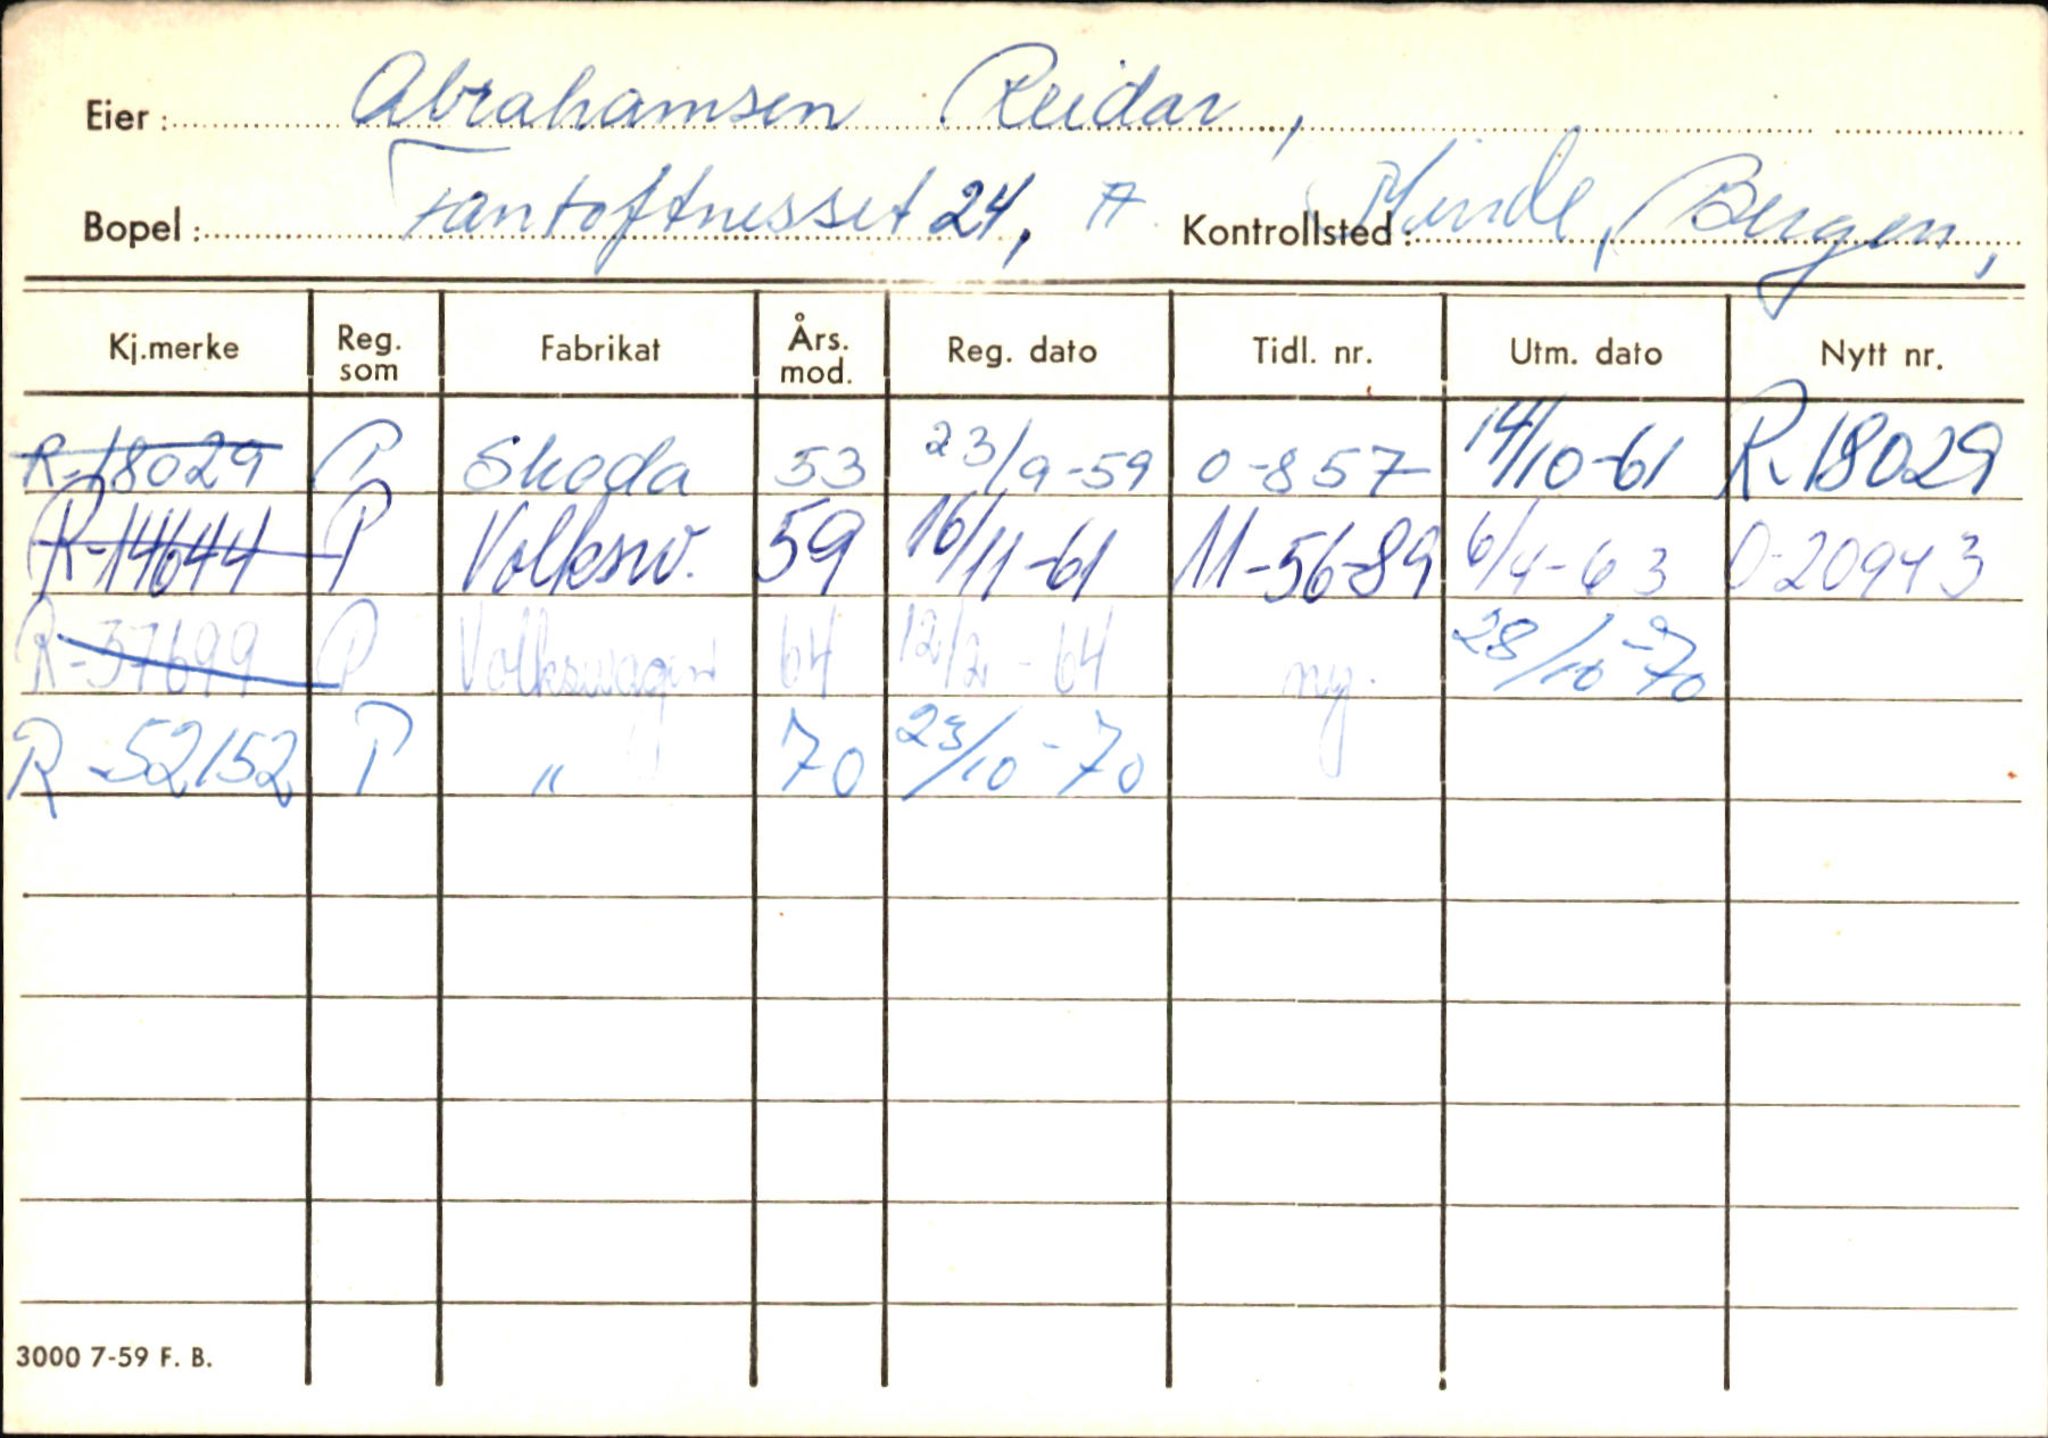 Eier: Abrahamsen Reidar,
Bopel: Fantoftnesset 24, A Kontrollsted: Minde, Bergen,
Kj.merke Reg. som Fabrikat Års. mod. Reg. dato Tidl. nr. Utm. dato Nytt nr.
R-18029 P Skoda 53 23/9-59 O-857 14/10-61 R-18029
R-14644 P Volksw. 59 16/11-61 11-56-89 6/4-63 O-20943
R-37699 P Volkswagen 64 12/2-64 ny. 28/10-70
R-52152 P " 70 23/10-70
3000 7-59 F. B.